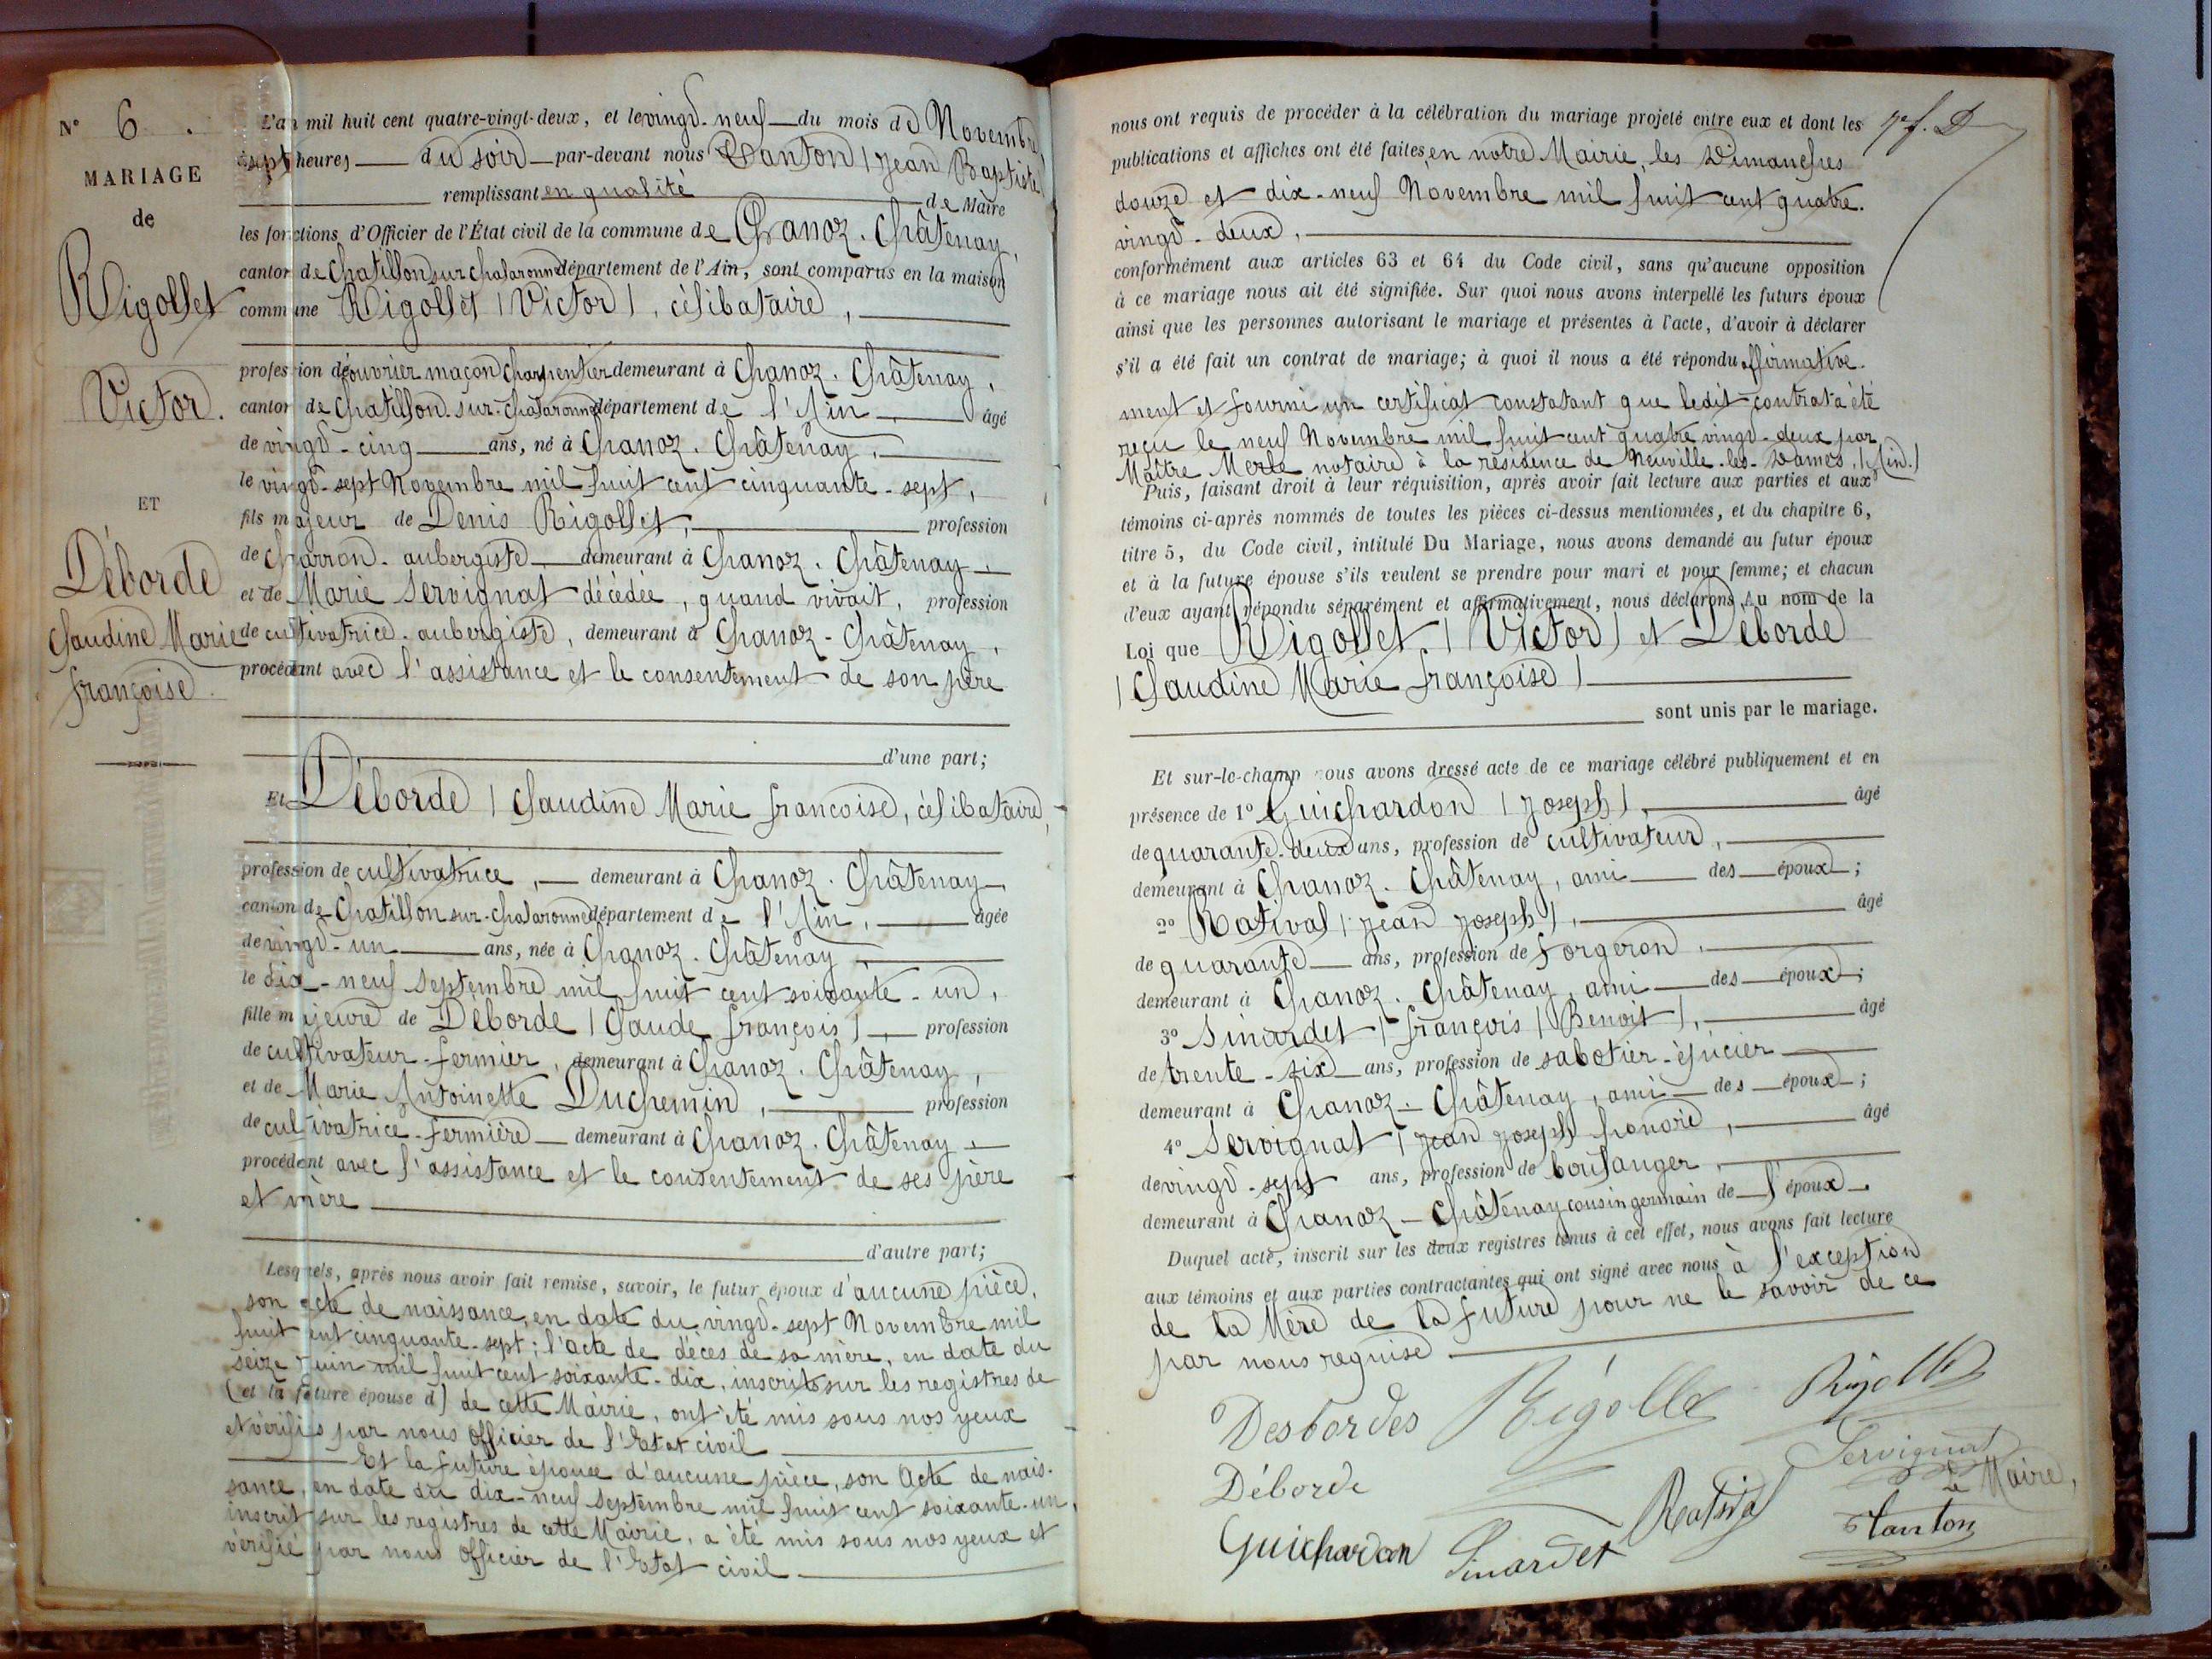 N° 6.
MARIAGE
de
Rigollet
Victor.
ET
Déborde
Claudine Marie
françoise.
L'an mil huit cent quatre-vingt-deux, et le vingt-neuf du mois de Novembre
à sept heures du soir par-devant nous (Jean Baptiste)
remplissant en qualité de Maire
les fonctions d'Officier de l'État civil de la commune de Chanoz-Châtenay,
canton de Chatillon sur Chalaronne département de l'Ain, sont comparus en la maison
commune Rigollet (Victor), célibataire,
profession d'ouvrier maçon charpentier demeurant à Chanoz-Châtenay,
canton de Chatillon-sur-Chalaronne département de l'Ain, âgé
de vingt-cinq ans, né à Chanoz-Châtenay,
le vingt-sept Novembre mil huit cent cinquante-sept,
fils majeur de Denis Rigollet, profession
de charron-aubergiste demeurant à Chanoz-Châtenay
et de Marie Servignat décédée, quand vivait, profession
de cultivatrice-aubergiste, demeurant à Chanoz-Châtenay,
procédant avec l'assistance et le consentement de son père
d'une part;
Et Déborde (Claudine Marie francoise, célibataire,
profession de cultivatrice, demeurant à Chanoz-Châtenay,
canton de Chatillon sur-Chalaronne département de l'Ain, âgée
de vingt-un ans, née à Chanoz-Châtenay,
le dix-neuf Septembre mil huit cent soixante-un,
fille majeure de Déborde (Claude françois), profession
de cultivateur-fermier, demeurant à Chanoz-Châtenay,
et de Marie Antoinette Duchemin, profession
de cultivatrice-fermière demeurant à Chanoz-Châtenay
procédant avec l'assistance et le consentement de ses père
et mère
d'autre part;
Lesquels, après nous avoir fait remise, savoir, le futur époux d'aucune pièce,
son acte de naissance, en date du vingt-sept Novembre mil
huit cent cinquante-sept; l'acte de décès de sa mère, en date du
seize Juin mil huit cent soixante-dix, inscrits sur les registres de
(et la future épouse d) de cette Mairie, ont été mis sous nos yeux
et vérifiés par nous Officier de l'Etat civil
Et la future épouse d'aucune pièce, son Acte de nais-
sance, en date du dix-neuf Septembre mil huit cent soixante-un,
inscrit sur les registres de cette Mairie, a été mis sous nos yeux et
vérifié par nous Officier de l'Etat civil
nous ont requis de procéder à la célébration du mariage projeté entre eux et dont les
publications et affiches ont été faites en notre Mairie, les Dimanches
douze et dix-neuf Novembre mil huit cent quatre-
vingt-deux,
conformément aux articles 63 et 64 du Code civil, sans qu'aucune opposition
à ce mariage nous ait été signifiée. Sur quoi nous avons interpellé les futurs époux
ainsi que les personnes autorisant le mariage et présentes à l'acte, d'avoir à déclarer
s'il a été fait un contrat de mariage; à quoi il nous a été répondu affirmative-
ment et fourni un certificat constatant que ledit contrat a été
reçu le neuf Novembre mil huit cent quatre vingt-deux par
Maître Merle notaire à la résidence de Neuville-les-Dames, (Ain.)
Puis, faisant droit à leur réquisition, après avoir fait lecture aux parties et aux
témoins ci-après nommés de toutes les pièces ci-dessus mentionnées, et du chapitre 6,
titre 5, du Code civil, intitulé Du Mariage, nous avons demandé au futur époux
et à la future épouse s'ils veulent se prendre pour mari et pour femme; et chacun
d'eux ayant répondu séparément et affirmativement, nous déclarons Au nom de la
Loi que Rigollet (Victor) et Déborde
(Claudine Marie françoise)
sont unis par le mariage.
Et sur-le-champ nous avons dressé acte de ce mariage célébré publiquement et en
présence de 1° Guichardon (Joseph), âgé
de quarante-deux ans, profession de cultivateur,
demeurant à Chanoz-Châtenay, ami des époux;
2° Rativat (Jean Joseph), âgé
de quarante ans, profession de forgeron,
demeurant à Chanoz-Châtenay, ami des époux;
3° Sinardet (françois (Benoit), âgé
de trente-six ans, profession de sabotier-épicier
demeurant à Chanoz-Châtenay, ami des époux;
4° Servignat (Jean Joseph honoré, âgé
de vingt-sept ans, profession de boulanger,
demeurant à Chanoz-Châtenay cousin germain de l'époux.
Duquel acte, inscrit sur les deux registres tenus à cet effet, nous avons fait lecture
aux témoins et aux parties contractantes qui ont signé avec nous à l'exception
de la Mère de la future pour ne le savoir de ce
par nous requise
Desbordes Rigollet Rigollet
Servignat
Déborde
le Maire,
Guichardon Sinardet Rativat